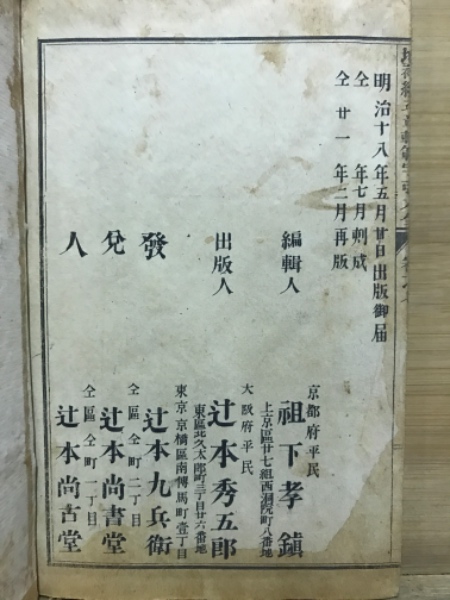 明治十八年五月廿日出版御届
仝　年七月刺成
仝　廿一年二月再版
編輯人
京都府平民
祖下孝鎮
上京區廿七組西洞院町八番地
出版人
大阪府平民
辻本秀五郎
東區北久太郎町三丁目廿六番地
發兌人
東京京橋區南傳馬町壹丁目
辻本九兵衛
仝區仝町二丁目
辻本尚書堂
仝區仝町一丁目
辻本尚古堂